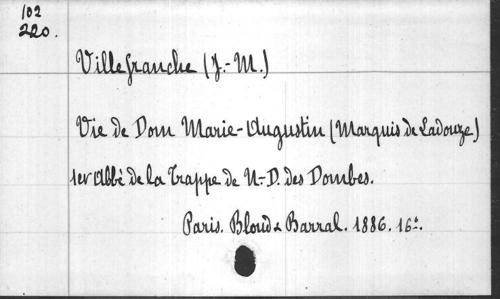 102
220.
Villefranche (J.-M.)
Vie de Dom Marie-Augustin (Marquis de Ladouze)
1er Abbé de la Trappe de N.-D. des Dombes.
Paris. Bloud & Barral. 1886. 16°.